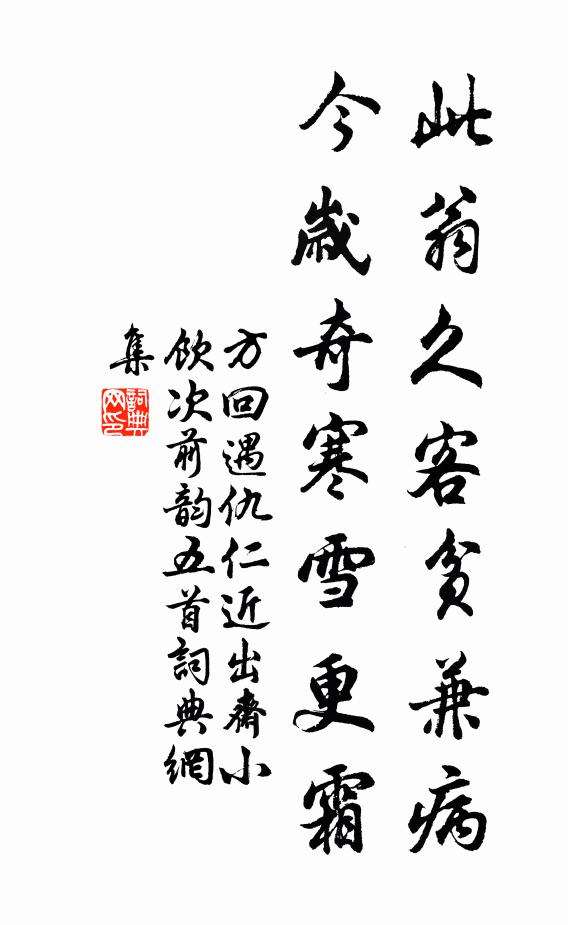 此翁久客貧兼病
今歲奇寒雪更霜
方回遇仇仁近出齋小
飲次前韵五首詞典網
集
詞典
网印